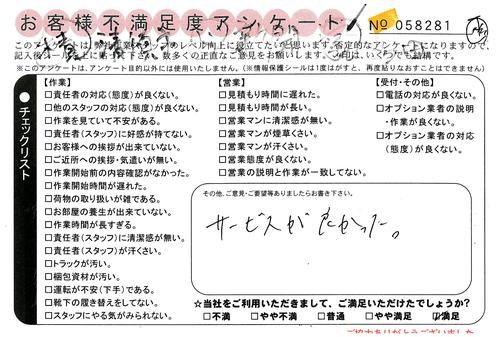 お客様不満足度アンケート
No 058281
このアンケートは、弊社
のレベル向上に役立てたい
思います。否定的なアンケートになりますので、
記入後シール
上に貼
下さい。数多くの正直なご意見をお願いします。
※このアンケートは、アンケート目的以外には使用いたしません。(※情報保護シールは1度はがすと、再度貼りなおすことはできません)
●チェックリスト
【作業】
□責任者の対応(態度)が良くない。
□他のスタッフの対応(態度)が良くない。
□作業を見ていて不安がある。
□責任者(スタッフ)に好感が持てない。
□お客様への挨拶が出来ていない。
□ご近所への挨拶・気遣いが無い。
□作業開始前の内容確認がなかった。
□作業開始時間が遅れた。
□荷物の取り扱いが雑である。
□お部屋の養生が出来ていない。
□作業時間が長すぎる。
□責任者(スタッフ)に清潔感が無い。
□責任者(スタッフ)が汗くさい。
□トラックが汚い。
□梱包資材が汚い。
□運転が不安(下手)である。
□靴下の履き替えをしてない。
□スタッフにやる気がみられない。
【営業】
□見積もり時間に遅れた。
□見積もり時間が長い。
□営業マンに清潔感が無い。
□営業マンが煙草くさい。
□営業マンが汗くさい。
□営業態度が良くない。
□営業の説明と作業が一致してない。
【受付・その他】
□電話の対応が良くない。
□オプション業者の説明
・作業が良くない。
□オプション業者の対応
(態度)が良くない。
その他、ご意見・ご要望等ありましたらお書き下さい。
サービスが良かった。
☆当社をご利用いただきまして、ご満足いただけたでしょうか?
□不満 □やや不満 □普通 □やや満足 ☑満足
ご協力ありがとうございました